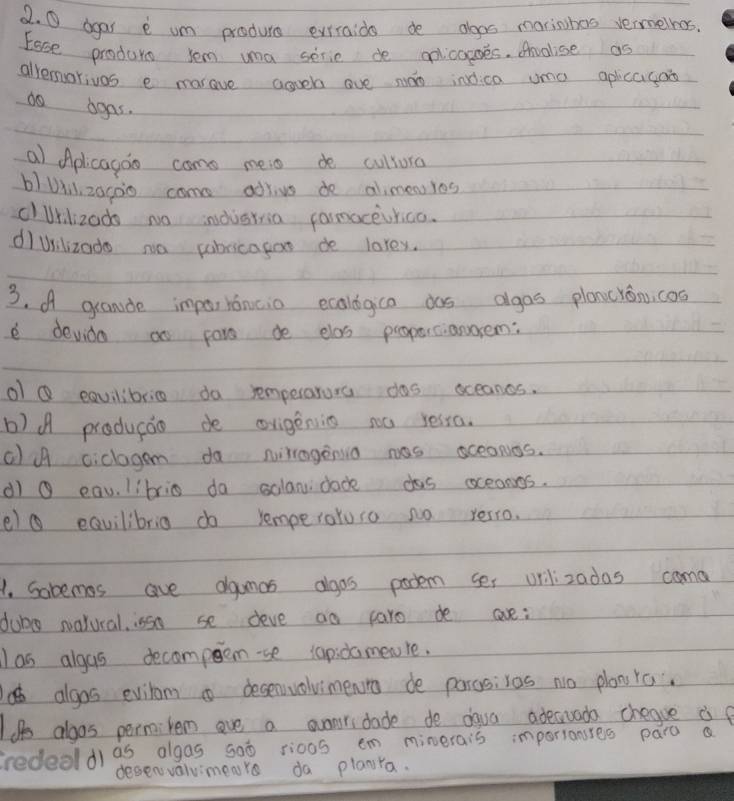 2. O agar é um produto extraído de algas marinhas vermelhas.
Esse produto tem uma série de aplicações. Analise as
alternativas e marque aquela que não indica uma aplicação
do ágar.
a) Aplicação como meio de cultura
b) Utilização como aditivo de alimentos
c) Utilizado na indústria farmacêutica.
d) Utilizado na fabricação de latex.
3. A grande importância ecológica das algas planctônicas
é devido ao fato de elas proporcionarem:
a) O equilibrio da temperatura dos oceanos.
b) A produção de oxigênio na terra.
c) A ciclagem da nitrogênio nos oceanos.
d) O equilibrio da salinidade dos oceanos.
e) O equilibrio da temperatura na terra.
1. Sabemos que algumas algas podem ser utilizadas como
dubo natural. isso se deve ao fato de que:
) as algas decompõem-se rapidamente.
) as algas evitam o desenvolvimento de parasitas na planta.
) As algas permitem que a quantidade de água adequada chegue à p
d) as algas são ricas em minerais importantes para o
desenvolvimento da planta.
credeal